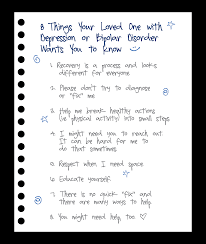 8 Things Your Loved One with
Depression or Bipolar Disorder
Wants You to Know
1. Recovery is a process and looks
different for everyone
2. Please don't try to diagnose
or "fix" me
3. Help me break healthy actions
(ie physical activity) into small steps
4. I might need you to reach out.
It can be hard for me to
do that sometimes
5. Respect when I need space
6. Educate yourself
7. There is no quick "fix" and
there are many ways to help
8. You might need help too